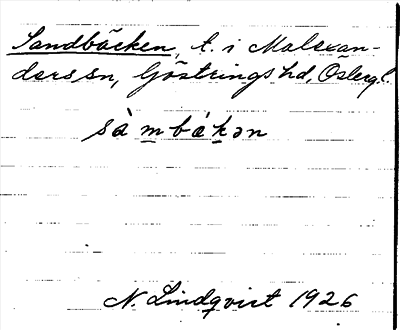 Sandbäcken, t. i Malexan-
ders sn, Göstrings hd, Östergl.
sàmbákən
N. Lindqvist 1926